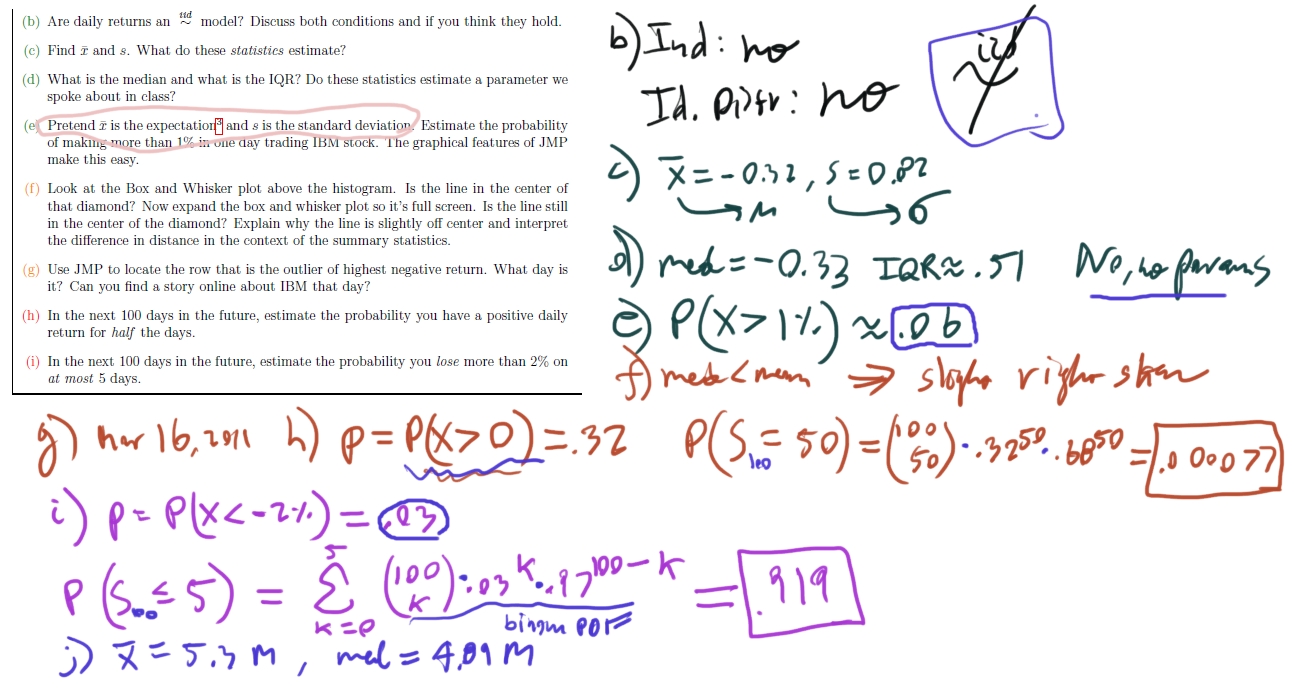 (b) Are daily returns an iid ~ model? Discuss both conditions and if you think they hold.
(c) Find x̄ and s. What do these statistics estimate?
(d) What is the median and what is the IQR? Do these statistics estimate a parameter we
spoke about in class?
(e) Pretend x̄ is the expectation³ and s is the standard deviation. Estimate the probability
of making more than 1% in one day trading IBM stock. The graphical features of JMP
make this easy.
(f) Look at the Box and Whisker plot above the histogram. Is the line in the center of
that diamond? Now expand the box and whisker plot so it's full screen. Is the line still
in the center of the diamond? Explain why the line is slightly off center and interpret
the difference in distance in the context of the summary statistics.
(g) Use JMP to locate the row that is the outlier of highest negative return. What day is
it? Can you find a story online about IBM that day?
(h) In the next 100 days in the future, estimate the probability you have a positive daily
return for half the days.
(i) In the next 100 days in the future, estimate the probability you lose more than 2% on
at most 5 days.
b) Ind: no
Id. Distr: no
iid ~
c) x̄ = -0.32, s = 0.82
→ μ → σ
d) med = -0.33 IQR ≈ .51 No, no params
e) P(X > 1%) ≈ .06
f) med < mean ⇒ slight right skew
g) Mar 16, 2011 h) p = P(X > 0) = .32 P(S₁₀₀ = 50) = (100 50) · .32⁵⁰ · .68⁵⁰ = .000077
i) p = P(X < -2%) = .03
P(S₁₀₀ ≤ 5) = Σ k=0 5 (100 k) · .03^k · .97^100-k = .919
binom PDF
j) x̄ = 5.3 M, med = 4.89 M